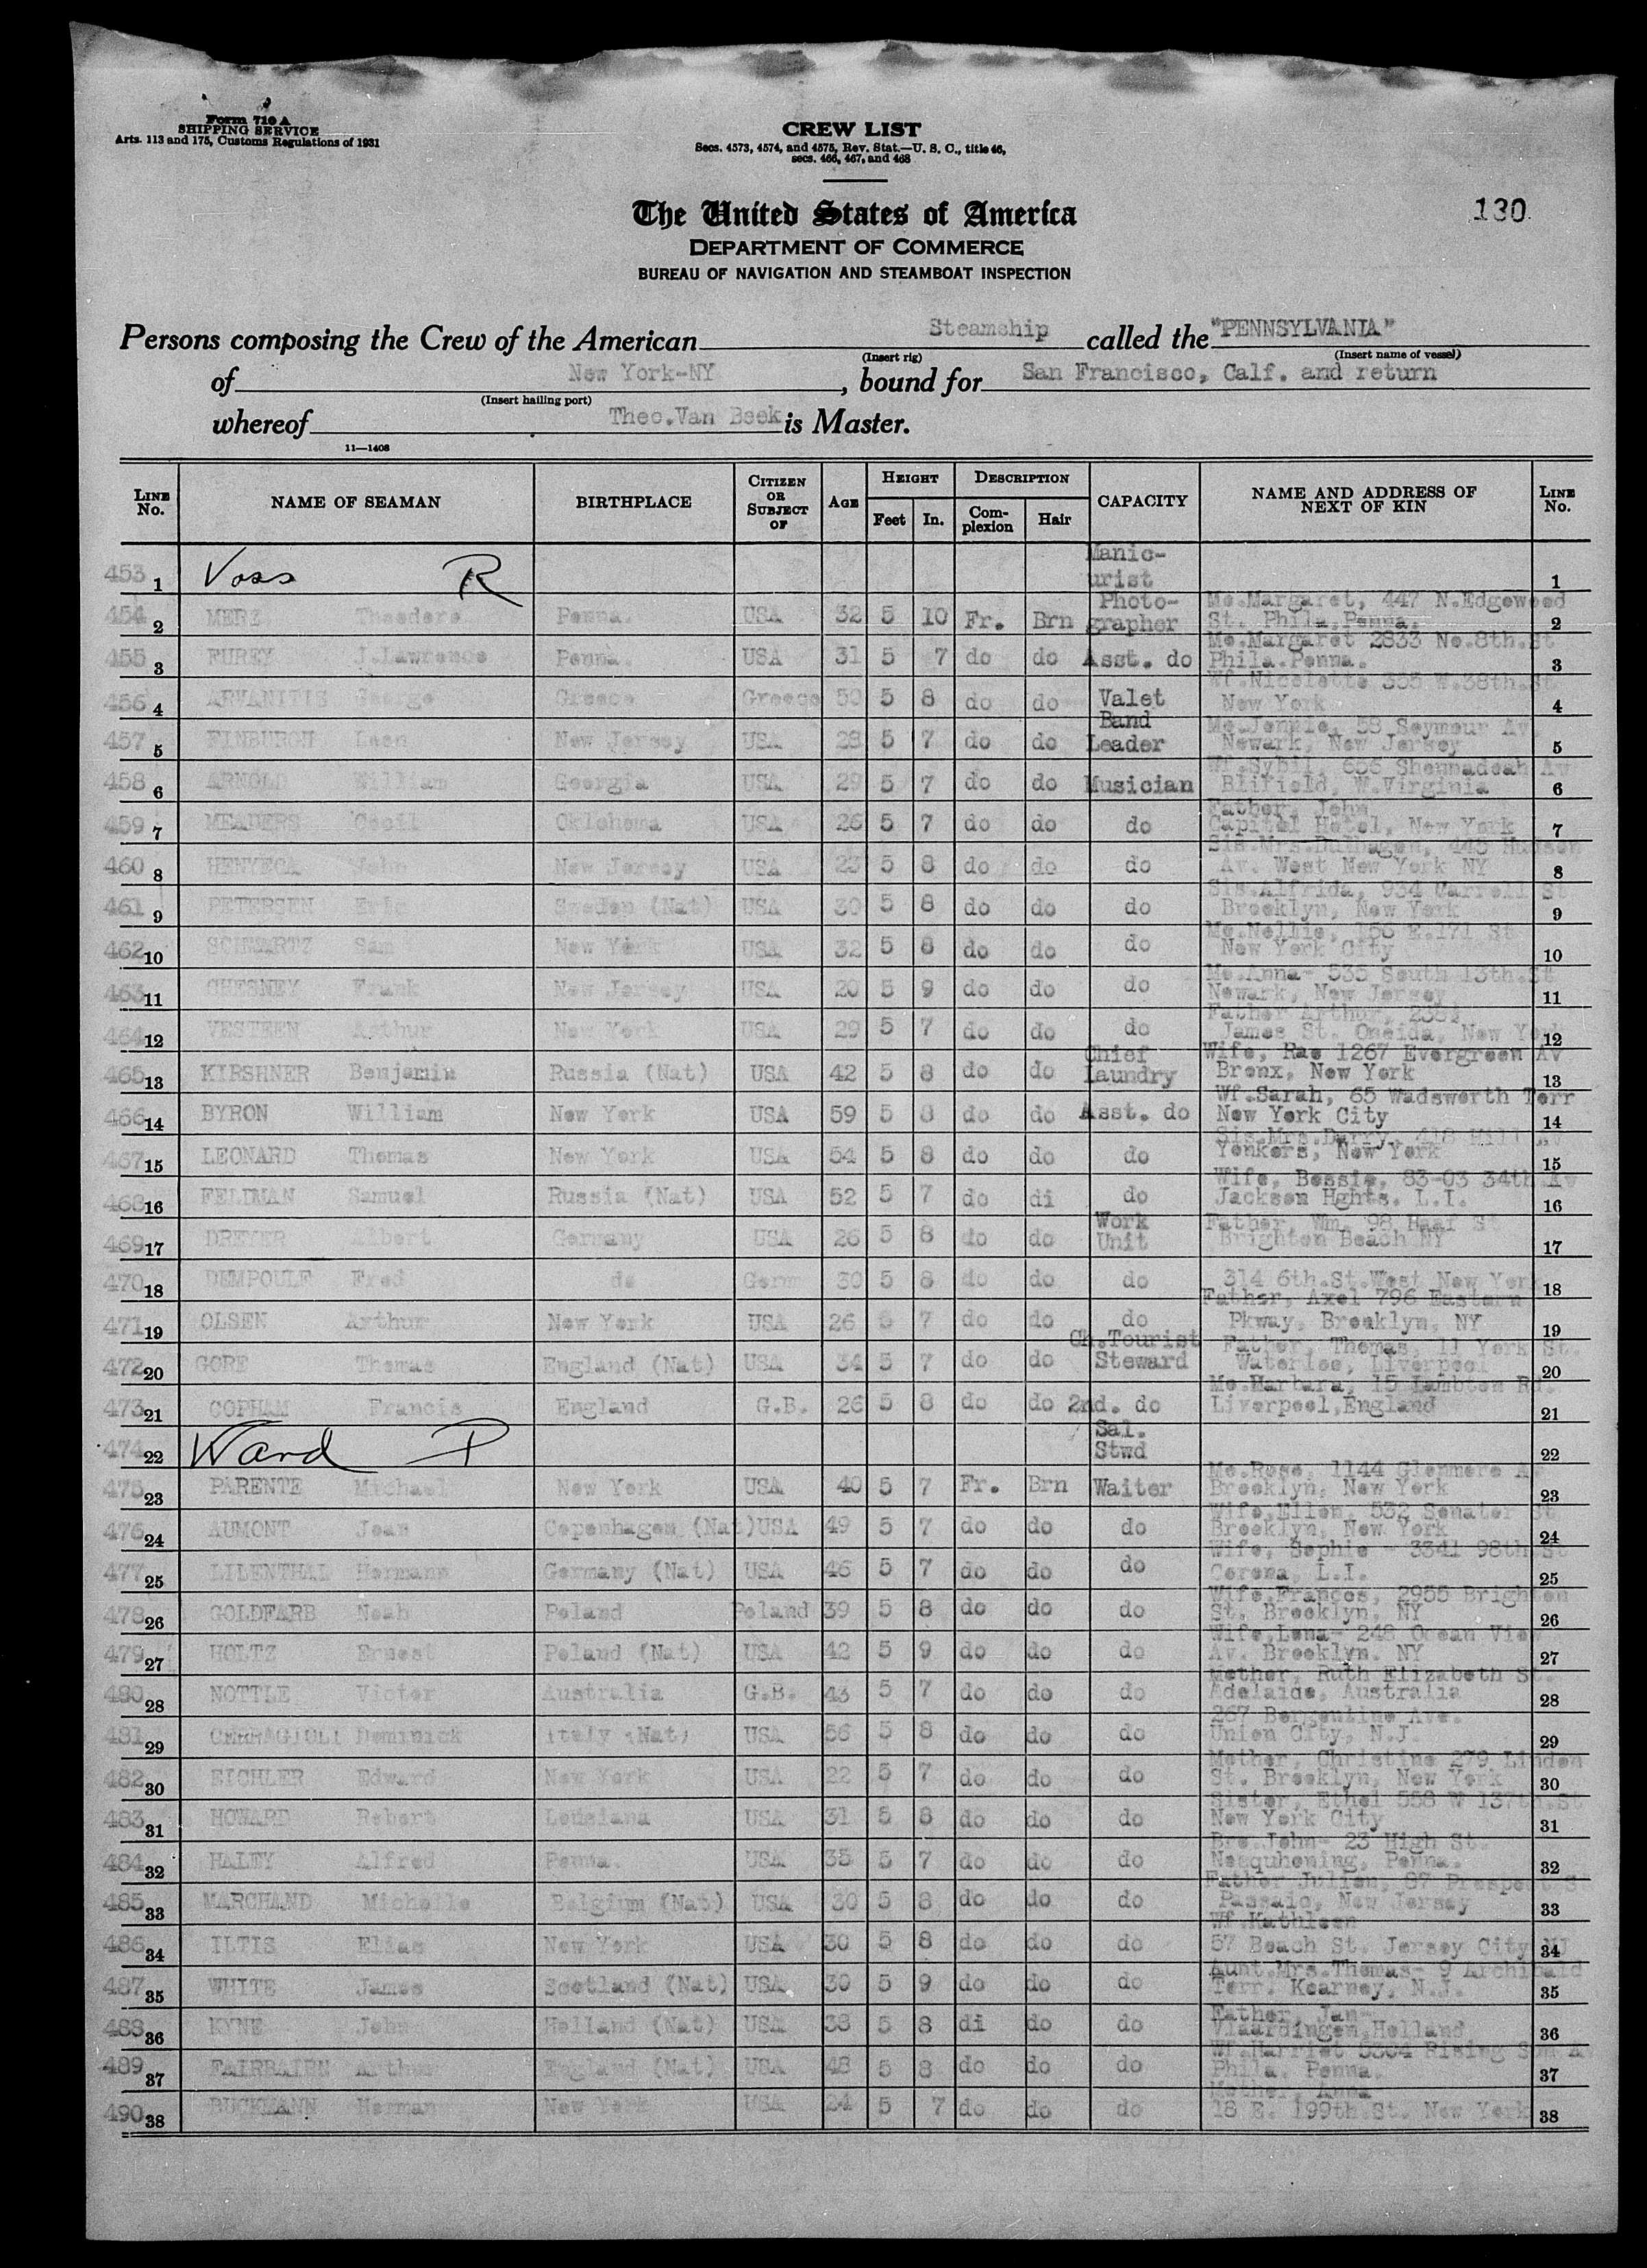 Form 710 A
SHIPPING SERVICE
Arts. 113 and 175, Customs Regulations of 1931
CREW LIST
Secs. 4573, 4574, and 4575, Rev. Stat.—U. S. C., title 46,
secs. 466, 467, and 468
The United States of America
DEPARTMENT OF COMMERCE
BUREAU OF NAVIGATION AND STEAMBOAT INSPECTION
130
Persons composing the Crew of the American Steamship called the "PENNSYLVANIA"
(Insert rig) (Insert name of vessel)
of New York-NY, bound for San Francisco, Calf. and return
(Insert hailing port)
whereof Theo.Van Beek is Master.
11—1408
LINE No. NAME OF SEAMAN BIRTHPLACE CITIZEN OR SUBJECT OF AGE HEIGHT Feet In. DESCRIPTION Complexion Hair CAPACITY NAME AND ADDRESS OF NEXT OF KIN LINE No.
453 1 Voss R Manicurist 1
454 2 MERZ Theodore Penna. USA 32 5 10 Fr. Brn Photographer Mo.Margaret, 447 N.Edgewood St. Phila.Penna. 2
455 3 FUREY J.Lawrence Penna. USA 31 5 7 do do Asst. do Mo.Margaret 2833 No.8th.St Phila.Penna. 3
456 4 ARVANITIS George Greece Greece 50 5 8 do do Valet Wf.Nicolette 355 W.38th.St New York 4
457 5 FINBURGH Leon New Jersey USA 28 5 7 do do Band Leader Mo.Jennie, 58 Seymour Av. Newark, New Jersey 5
458 6 ARNOLD William Georgia USA 29 5 7 do do Musician Wf.Sybil, 656 Shennadoah Av W.Virginia 6
459 7 MEADERS Cecil Oklohoma USA 26 5 7 do do do Father, John Capitol Hotel, New York 7
460 8 HENYECA John New Jersey USA 23 5 8 do do do 445 Hudson Av. West New York NY 8
461 9 PETERSEN Eric Sweden (Nat) USA 30 5 8 do do do Sis.Alfrida, 934 Carroll St Brooklyn, New York 9
462 10 SCHWARTZ Sam New York USA 32 5 8 do do do Mo.Nellie, 156 E.171 St New York City 10
463 11 CHESNEY Frank New Jersey USA 20 5 9 do do do Mo.Anna- 535 South 13th.St Newark, New Jersey 11
464 12 VESTEEN Arthur New York USA 29 5 7 do do do Father Arthur, James St. Oneida, New York 12
465 13 KIRSHNER Benjamin Russia (Nat) USA 42 5 8 do do Chief Laundry Wife, Rae 1267 Evergreen Av Bronx, New York 13
466 14 BYRON William New York USA 59 5 8 do do Asst. do Wf.Sarah, 65 Wadsworth Terr New York City 14
467 15 LEONARD Thomas New York USA 54 5 8 do do do Sis.Mrs.Barry, 418 Hill Av Yonkers, New York 15
468 16 FELDMAN Samuel Russia (Nat) USA 52 5 7 do di do Wife, Bessie, 83-03 34th.Av Jackson Hghts. L.I. 16
469 17 DREYER Albert Germany USA 26 5 8 do do Work Unit Father, Wm. 98 Haaf St Brighton Beach NY 17
470 18 DEMPOULF Fred do Germ 30 5 8 do do do 314 6th.St.West New York 18
471 19 OLSEN Arthur New York USA 26 5 7 do do do Father, Axel 796 Eastern Pkway, Brooklyn, NY 19
472 20 GORE Thomas England (Nat) USA 34 5 7 do do Ch.Tourist Steward Father, Thomas, 11 York St. Waterloo, Liverpool 20
473 21 COPHAM Francis England G.B. 26 5 8 do do 2nd. do Mo.Barbara, 15 Lambton Rd. Liverpool,England 21
474 22 Ward P Sal. Stwd 22
475 23 PARENTE Michael New York USA 40 5 7 Fr. Brn Waiter Mo.Rose, 1144 Glenmore Av Brooklyn, New York 23
476 24 AUMONT Jean Copenhagen (Nat)USA 49 5 7 do do do Wife,Ellen, 532 Senater St Brooklyn, New York 24
477 25 LILENTHAL Hermann Germany (Nat) USA 46 5 7 do do do Wife, Sophie - 3341 98th.St Corona, L.I. 25
478 26 GOLDFARB Noah Poland Poland 39 5 8 do do do Wife,Frances, 2955 Brighton St. Brooklyn, NY 26
479 27 HOLTZ Ernest Poland (Nat) USA 42 5 9 do do do Wife,Lena- 248 Ocean View Av. Brooklyn. NY 27
480 28 NOTTLE Victor Australia G.B. 43 5 7 do do do Mother, Ruth Elizabeth St. Adelaide, Australia 28
481 29 Dominick Italy (Nat) USA 56 5 8 do do do 267 Bergenline Ave. Union City, N.J. 29
482 30 EICHLER Edward New York USA 22 5 7 do do do Mother, Christine 279 Linden St. Brooklyn, New York 30
483 31 HOWARD Robert Louisiana USA 31 5 8 do do do Sister, Ethel 558 W 137th.St New York City 31
484 32 HALEY Alfred Penna. USA 35 5 7 do do do Bro.John- 23 High St. Nesquhoning, Penna. 32
485 33 MARCHAND Michelle Belgium (Nat) USA 30 5 8 do do do Father Julien, 87 Prospect St Passaic, New Jersey 33
486 34 ILTIS Elias New York USA 30 5 8 do do do Wf.Kathleen 57 Beach St. Jersey City NJ 34
487 35 WHITE James Scotland (Nat) USA 30 5 9 do do do Aunt.Mrs.Thomas- 9 Archibald Terr. Kearney, N.J. 35
488 36 KYNE John Holland (Nat) USA 38 5 8 di do do Father, Jan- Vlaardingen,Holland 36
489 37 FAIRBAIRN Arthur England (Nat) USA 48 5 8 do do do Wf.Harriet 5304 Rising Sun A. Phila. Penna. 37
490 38 BUCKMANN Herman New York USA 24 5 7 do do do Mother, Anna 18 E. 199th.St. New York 38